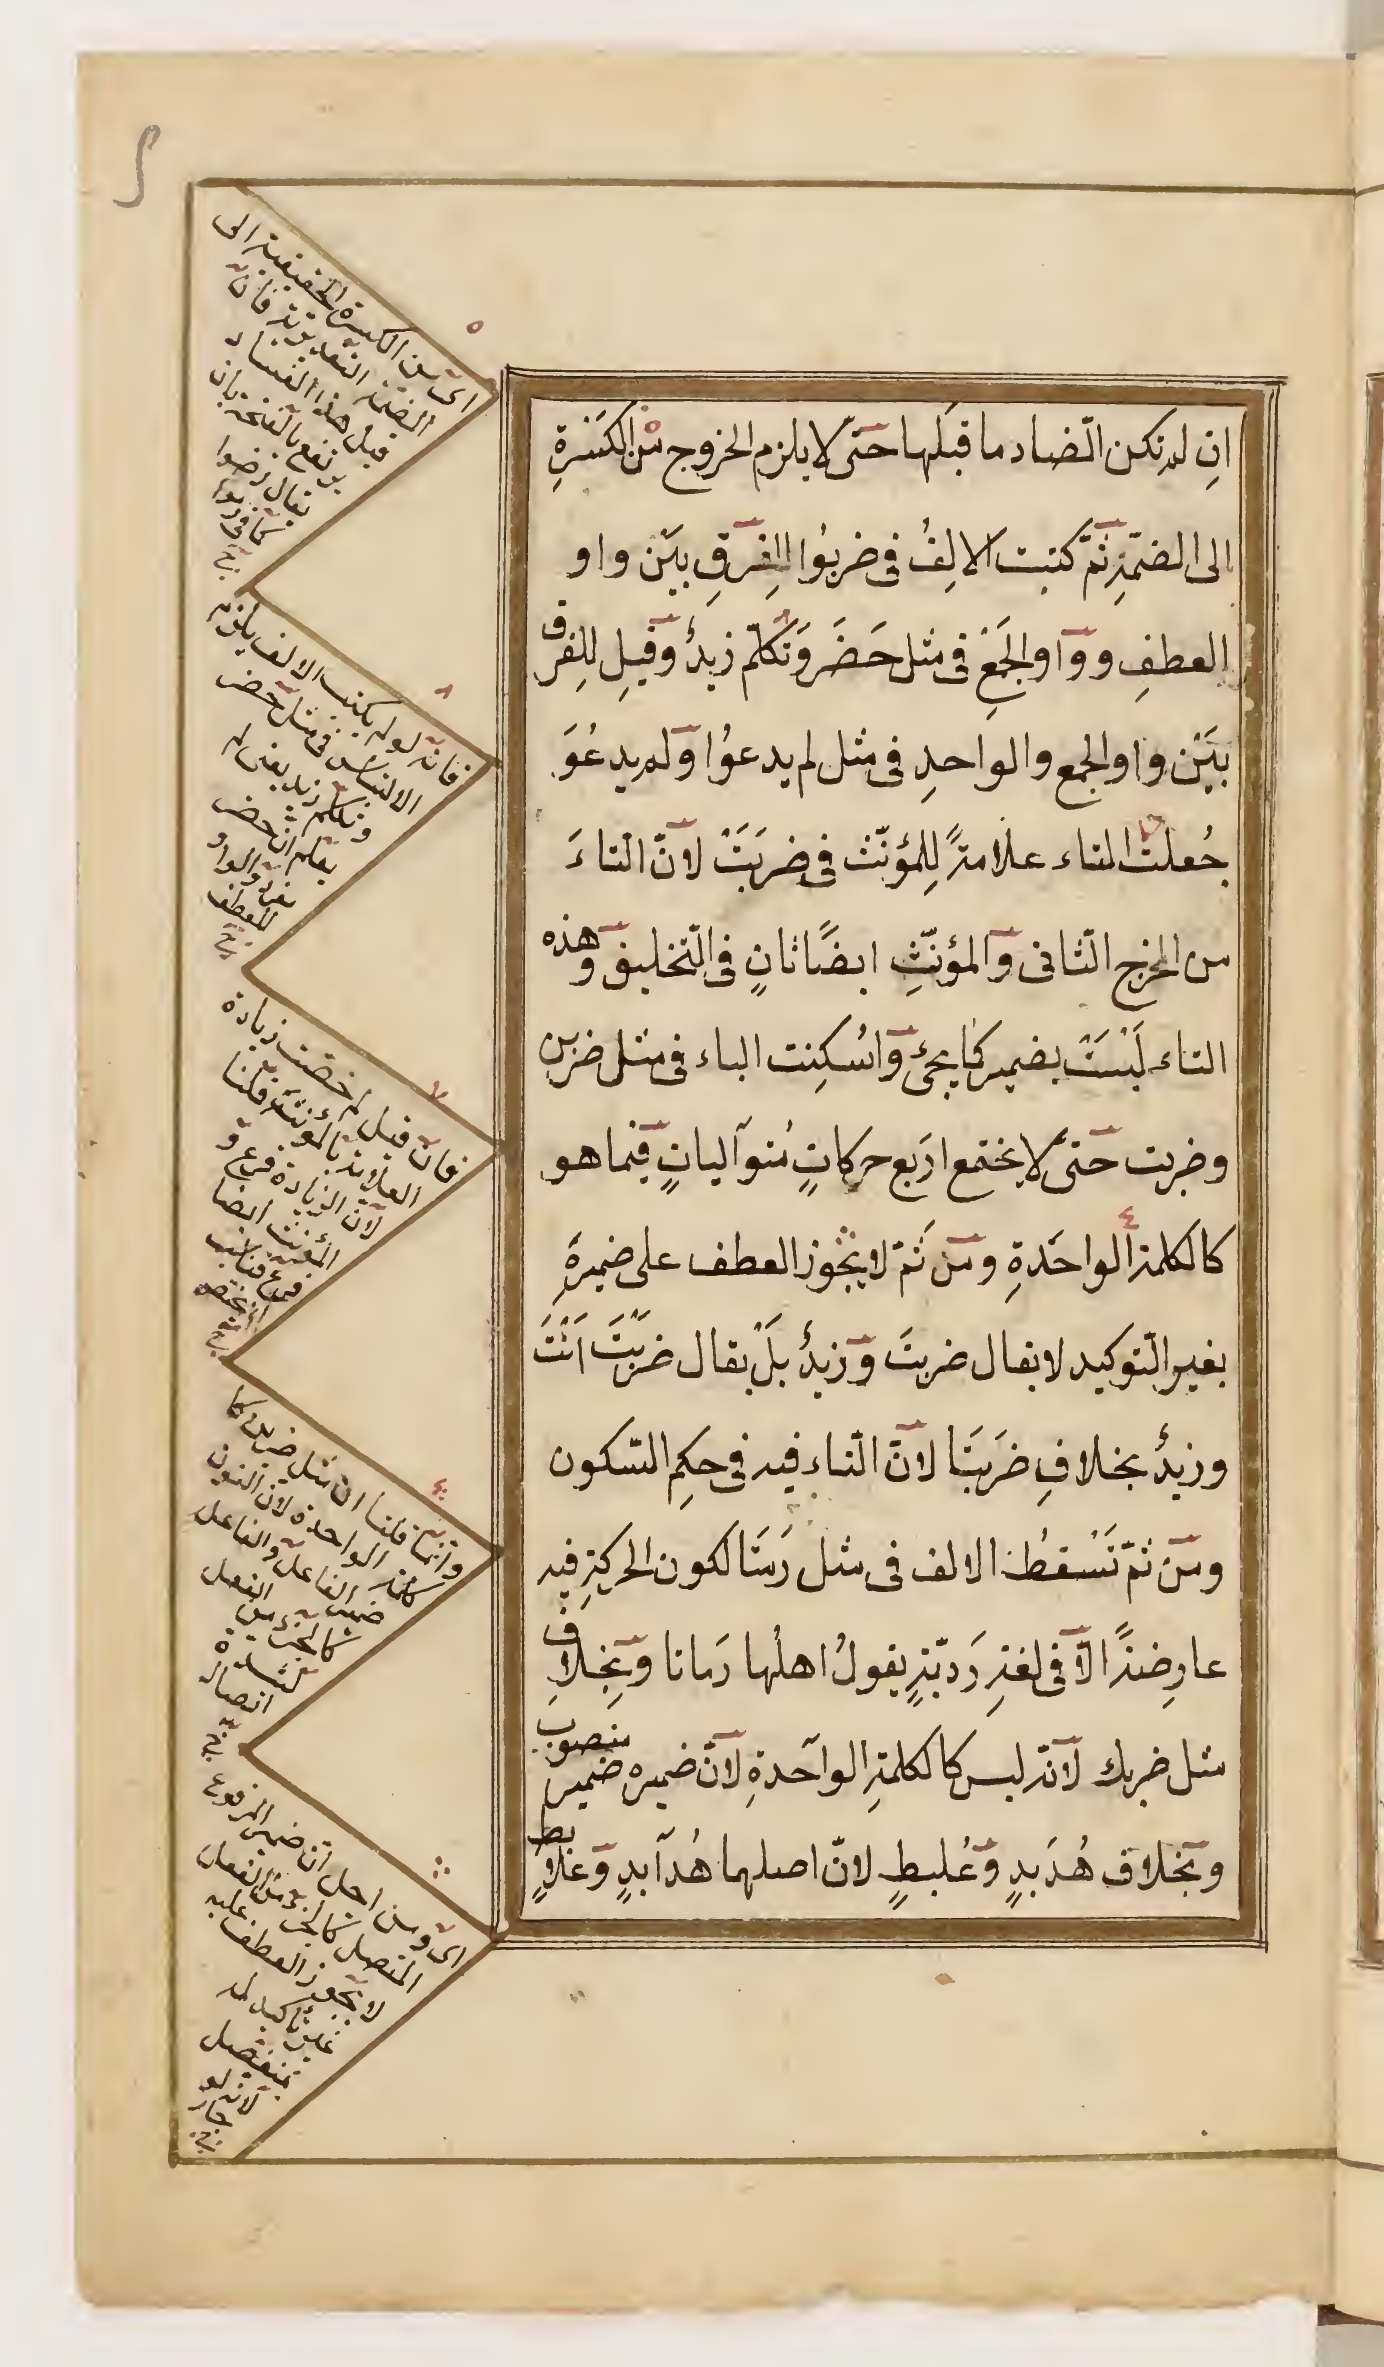 اِن لم تكن الضاد ما قبلها حتّى لا يلزم الخروج من الكَسْرةِ
الى الضمّةِ ثمّ كتبت الالِفُ فى ضربُوا للِفَرقِ بَيْن واو
العطفِ وواو الجَمْعِ فى مثل حَضَر وَتكلّم زيدٌ وقيل للِفرق
بَيْن واو الجمع والواحدِ فى مثل لم يدعوُا ولم يدعُوَ
جُعلت التاء علامةً لِلمؤنّث فى ضربَتْ لانّ التاءَ
من المخرج الثانى والمؤنّثِ ايضًا ثانٍ فى التخليق وهذه
التاء لَيْسَتْ بضمير كما يجئ واسُكِنت الباء فى مثل ضربن
وضربت حتىّ لا يجتمع اربع حركاتٍ مُتواليات فيما هو
كالكلمة الواحَدةِ ومن ثَمّ لا يجُوز العطف على ضميرهِ
بغير التوكيد لا يقال ضربتَ وزيدٌ بلَ يقال ضرَبَتَ اَنْتَ
وزيدٌ بخلافِ ضرَبَتَا لانّ التاء فيه فى حكِم السّكون
ومن ثمّ تَسْقطُ الالف فى مثل رَمَتَا لكون الحركةِ فيه
عارِضةً الاّ فى لغةِ رَديّةٍ يقولُ اهلُها رَمانا وبِخلافِ
مثل ضربك لانّه ليس كالكلمةِ الواحدةِ لانّ ضميره ضمير منصوب
وبخلاف هُدَبدٍ وعُلبطٍ لانّ اصلهما هُدابدٍ وعُلابطٍ
٥
اى من الكسرة الحقيقية الى
الضمّة التقديرية فان
قيل هذا الفساد
يرتفع بالفتحة بان
يقال رضوا
كما فى رموا
٨
فانّه لو لم يكتب الالف يلزم
الالتباس فى مثل حضر
وتكلم زيد يعنى لم
يعلم ان حضر
مفرد والواو
للعطف
٧
فان قيل لم خصّت زيادة
العلامة بالمؤنث قلنا
لانّ الزيادة فرع و
المؤنث ايضا
فرع فناسب
٤
وانّما قلنا انّ مثل ضربن كا
لكلمة الواحدة لانّ النون
ضمير الفاعل والفاعل
كالجزء من الفعل
لشدّة
اتصاله
اى ومن اجل انّ ضمير المرفوع
المتصل كالجزء من الفعل
لا يجوز العطف عليه
غير تأكيد له
بمنفصل
لانّه لو
جاز